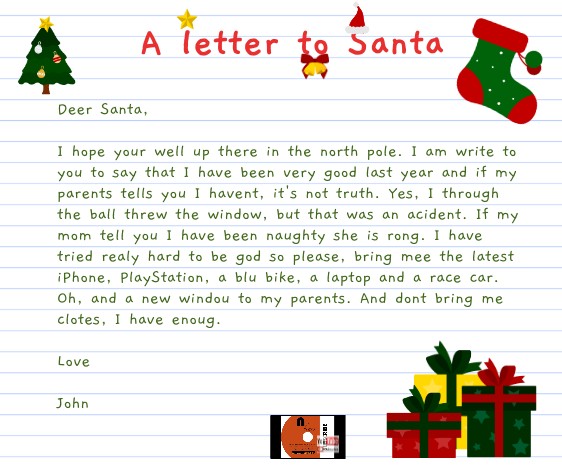 A letter to Santa
Deer Santa,
I hope your well up there in the north pole. I am write to
you to say that I have been very good last year and if my
parents tells you I havent, it's not truth. Yes, I through
the ball threw the window, but that was an acident. If my
mom tell you I have been naughty she is rong. I have
tried realy hard to be god so please, bring mee the latest
iPhone, PlayStation, a blu bike, a laptop and a race car.
Oh, and a new windou to my parents. And dont bring me
clotes, I have enoug.
Love
John